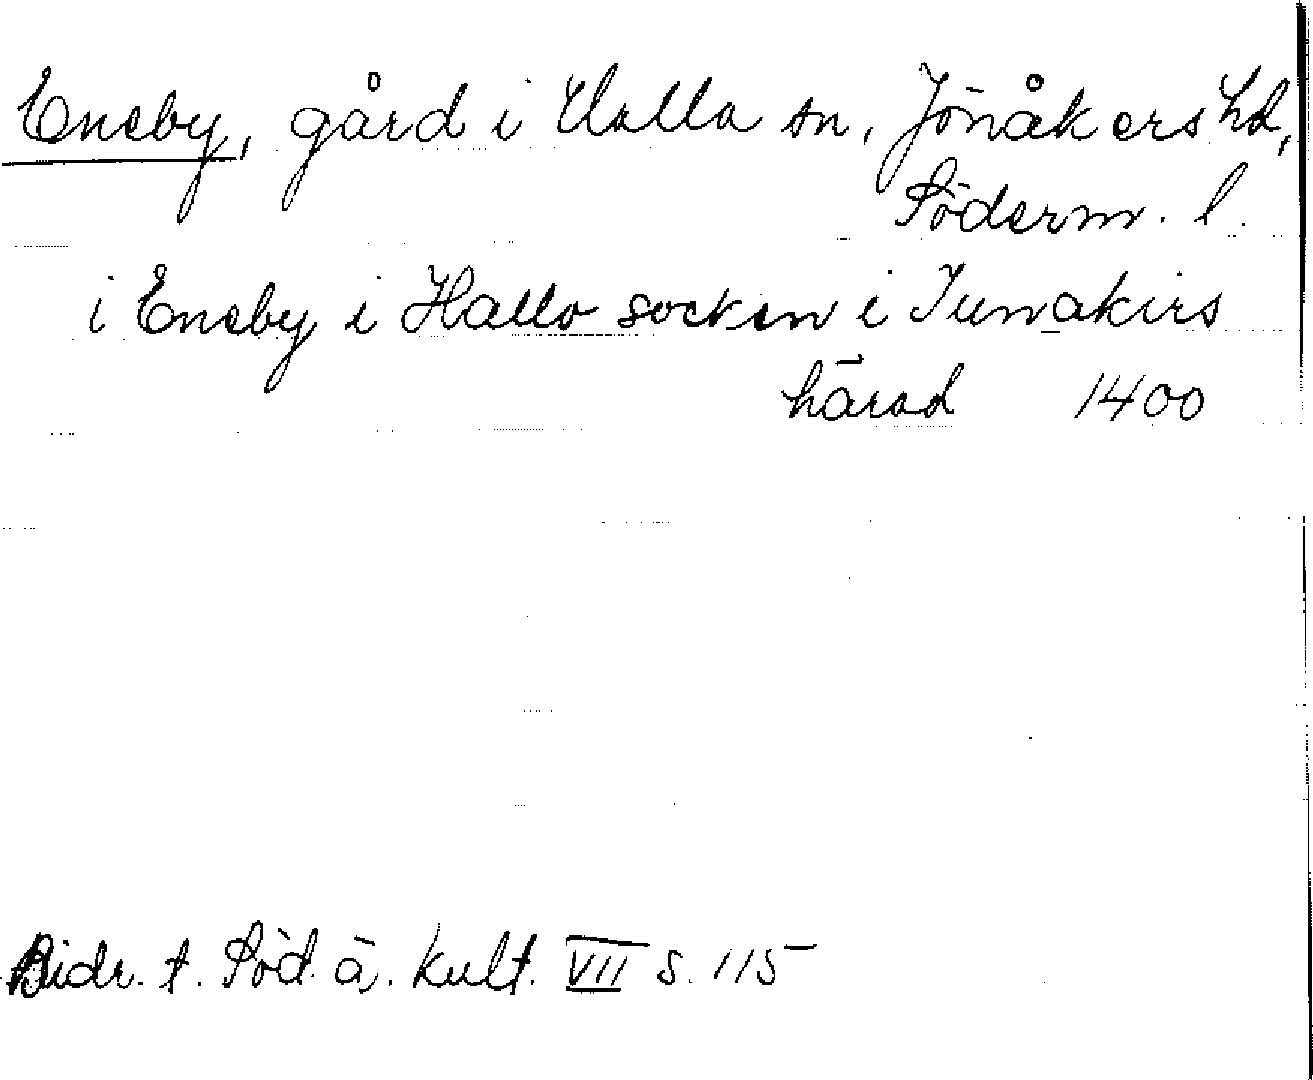 Eneby, gård i Halla sn, Jönåkers hd,
Söderm. l.
i Eneby i Halla socken i Junakirs
härad 1400
Bidr. t. Söd. ä. kult. VII s. 115